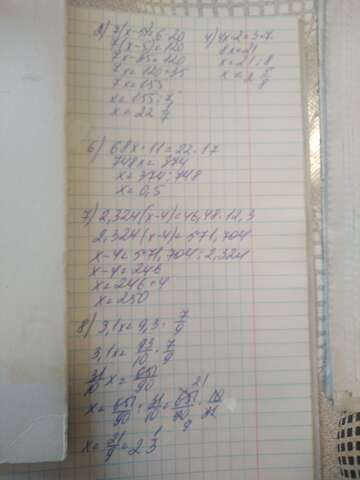 2) 7(x-5)=6·20
7(x-5)=120
7x-35=120
7x=120+35
7x=155
x=155:7
x=22 1/7
4) 4x·2=3·7
8x=21
x=21:8
x=2 5/8
6) 68x·11=22·17
748x=374
x=374:748
x=0,5
7) 2,324(x-4)=46,48·12,3
2,324(x-4)=571,704
x-4=571,704:2,324
x-4=246
x=246+4
x=250
8) 3,1x=9,3·7/9
3,1x=93/10·7/9
31/10 x=651/90
x=651/90:31/10=651/90·10/31
21
9
x=21/9=2 1/3